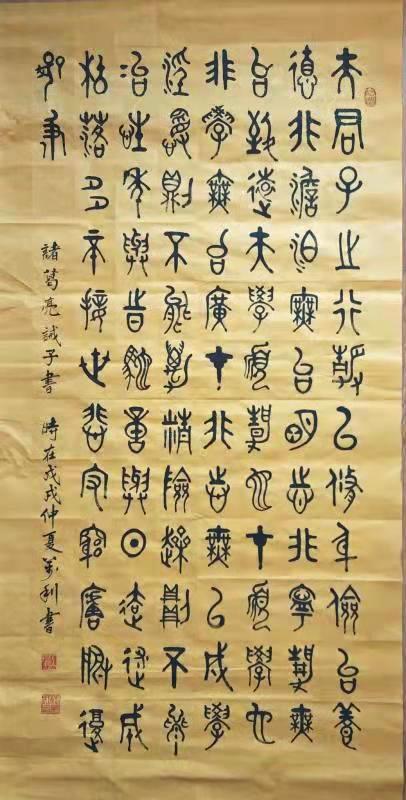 夫君子之行靜以修身儉以養
德非澹泊無以明志非寧靜無
以致遠夫學須靜也才須學也
非學無以廣才非志無以成學
淫慢則不能勵精險躁則不能
治性年與時馳意與日去遂成
枯落多不接世悲守窮廬將復
何及
諸葛亮誡子書 時在戊戌仲夏萬利書